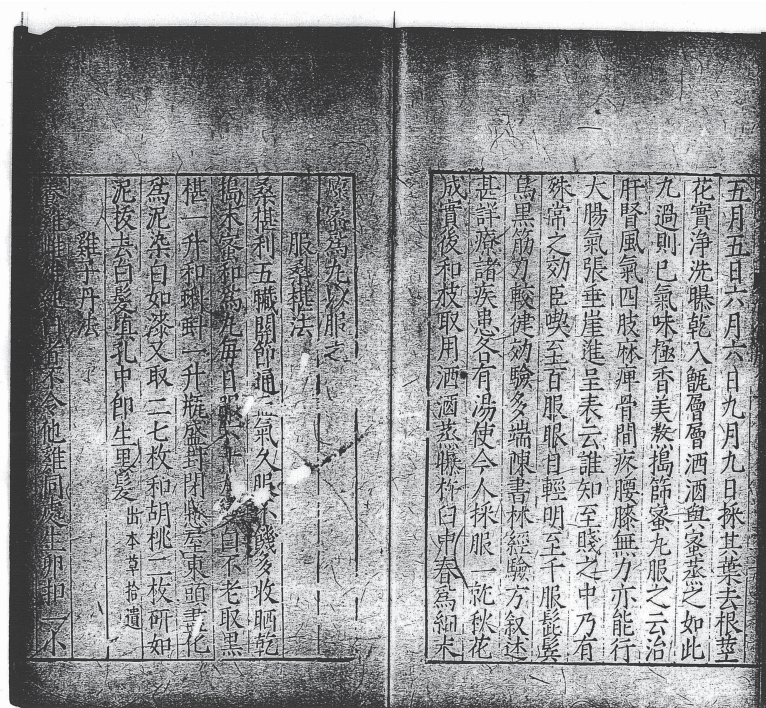 五月五日六月六日九月九日採其葉去根莖
花實淨洗曝乾入甑層層洒酒與蜜蒸之如此
九過則已氣味極香美熬搗篩蜜丸服之云治
肝腎風氣四肢麻痺骨間疼腰膝無力亦能行
大腸氣張垂崖進呈表云誰知至賤之中乃有
殊常之効臣喫至百服眼目輕明至千服髭鬢
烏黑筋力較健効驗多端陳書林經驗方叙述
甚詳療諸疾患各有湯使今人採服一就秋花
成實後和枝取用洒酒蒸曝杵臼中舂為細末
煉蜜為丸以服之
服桑椹法
桑椹利五臟關節通氣久服不饑多收晒乾
搗末蜜和為丸每日服六十丸變白不老取黑
椹一升和蝌蚪一升瓶盛封閉懸屋東頭盡化
為泥染白如漆又取二七枚和胡桃二枚研如
泥拔去白髮填孔中即生黑髮出本草拾遺
雞子丹法
養雞雌雄純白者不令他雞同處生卵扣一小